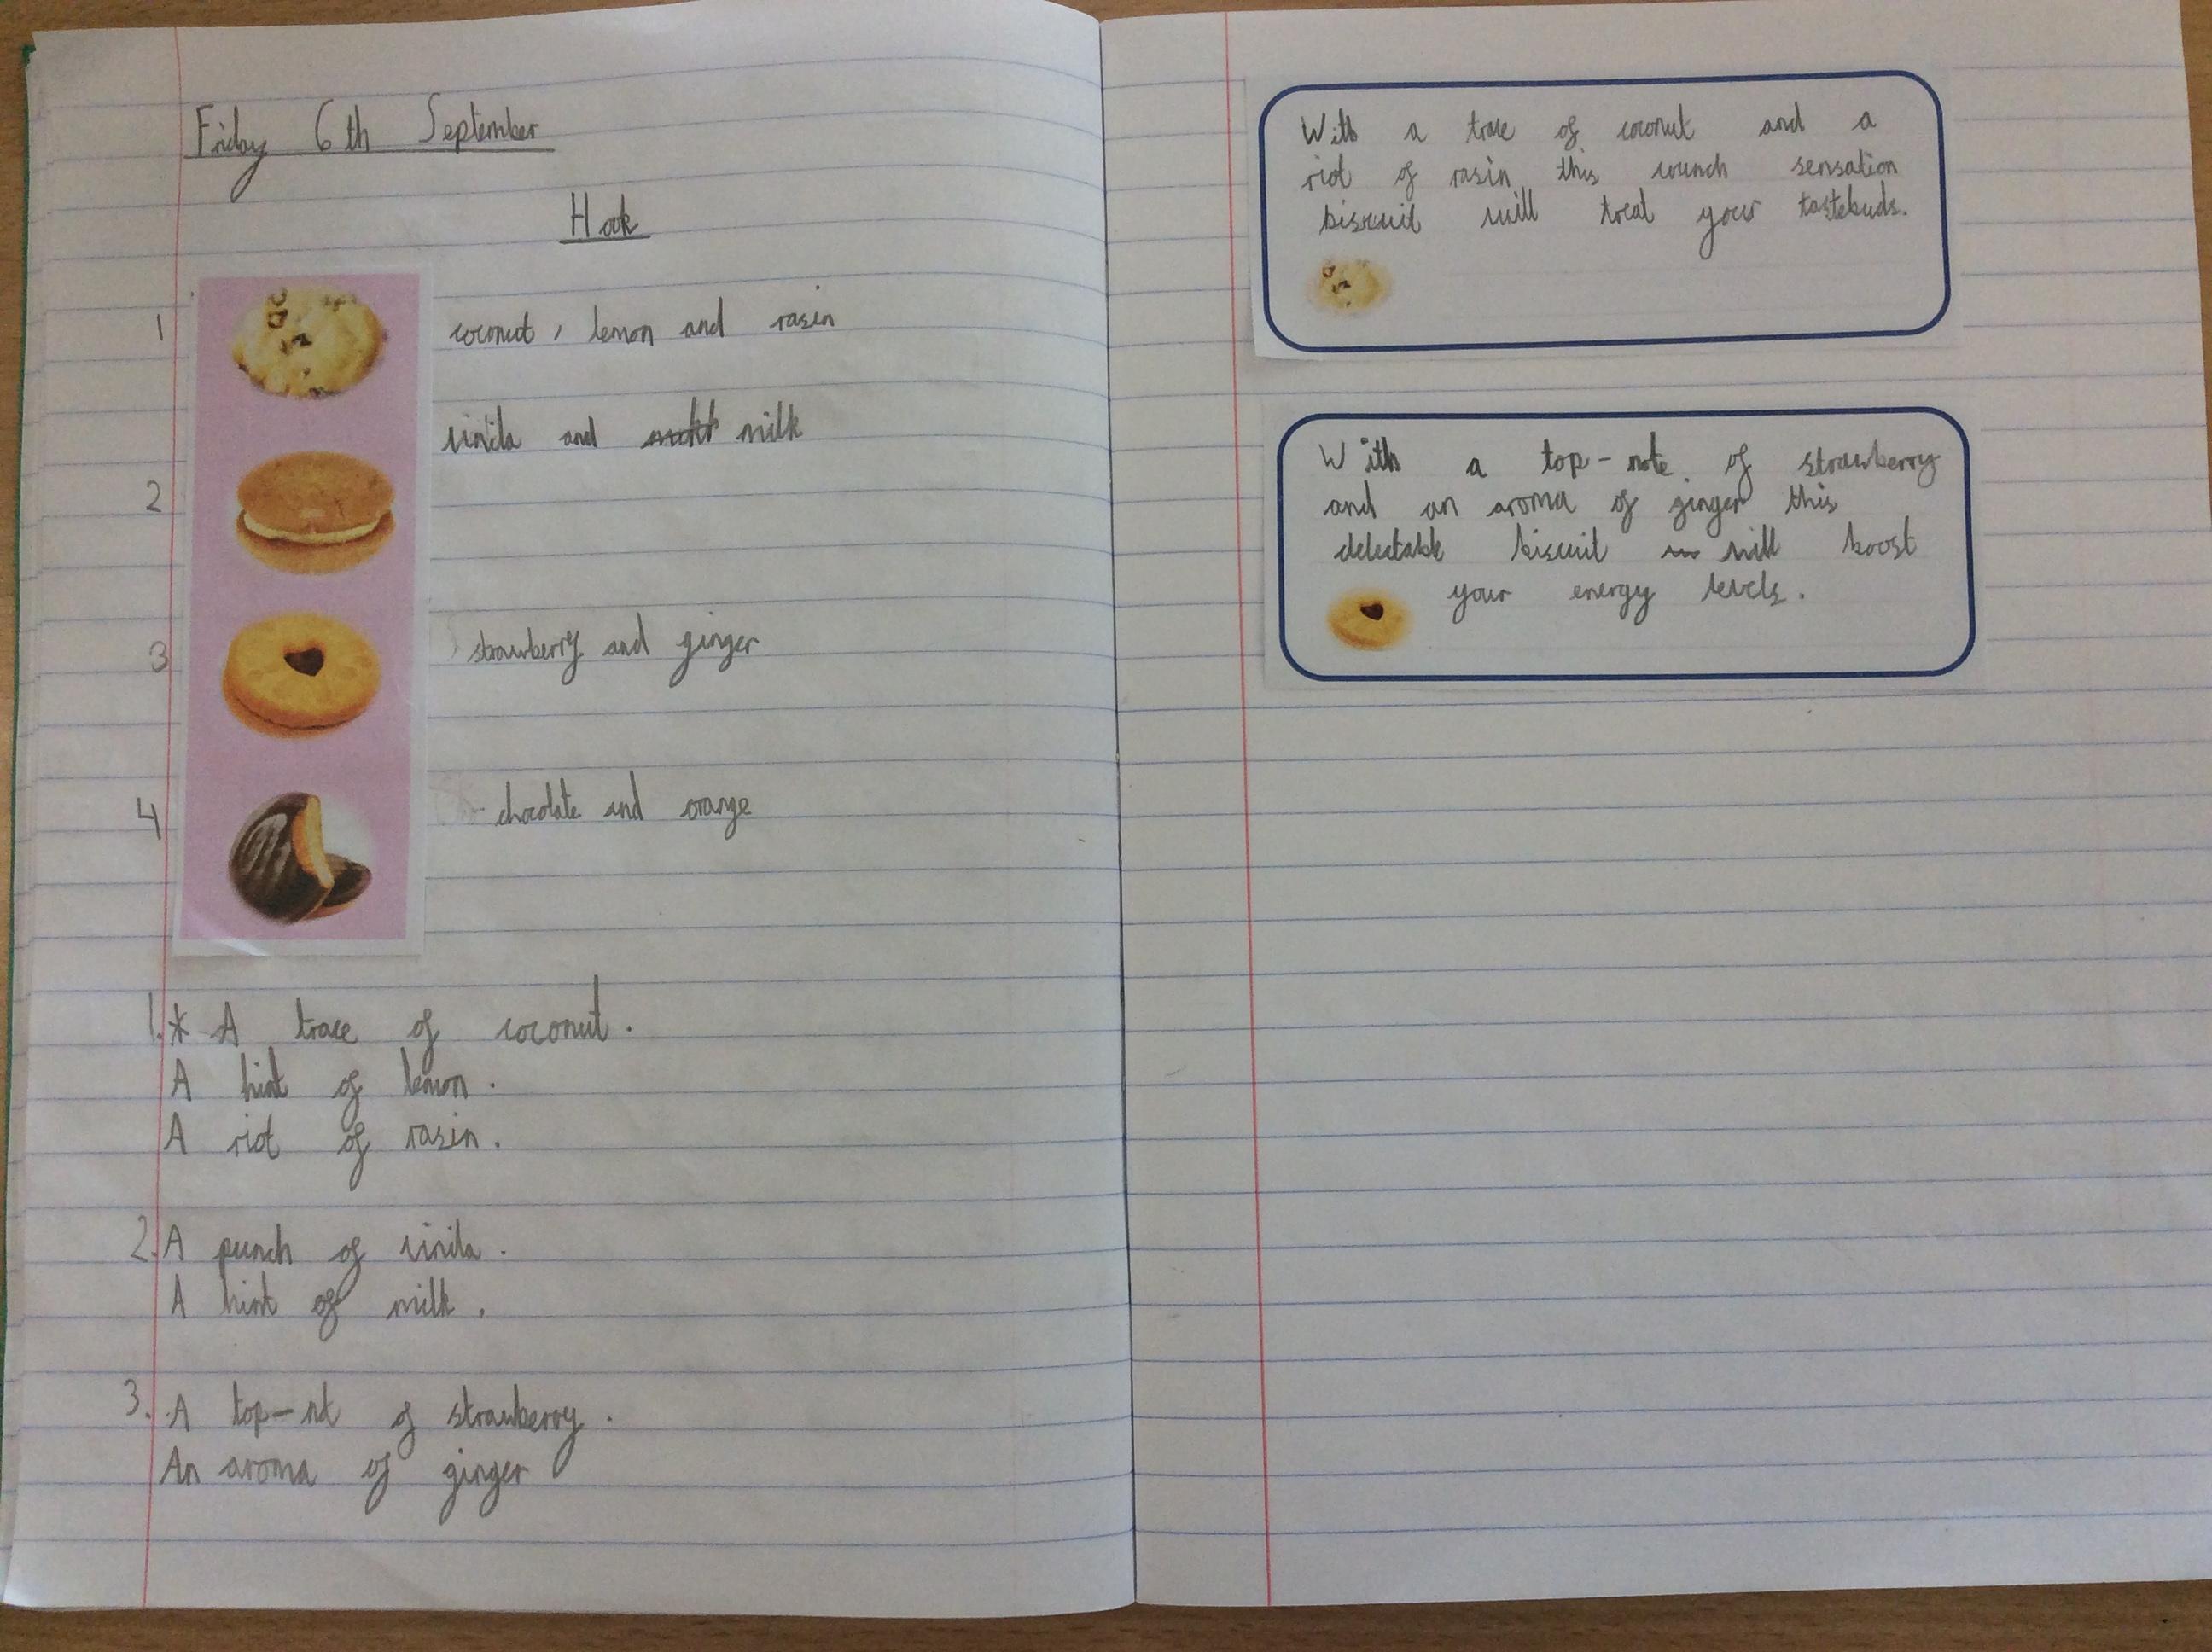 Friday 6th September
Hook
1 coconut, lemon and rasin
vinila and milk
2
3 strawberry and ginger
4 chocolate and orange
1.* A trace of coconut.
A hint of lemon.
A riot of rasin.
2. A punch of vinila.
A hint of milk.
3. A top-nt of strawberry.
An aroma of ginger
With a trace of coconut and a
riot of rasin this crunch sensation
biscuit will treat your tastebuds.
With a top-note of strawberry
and an aroma of ginger this
delectable biscuit will boost
your energy levels.